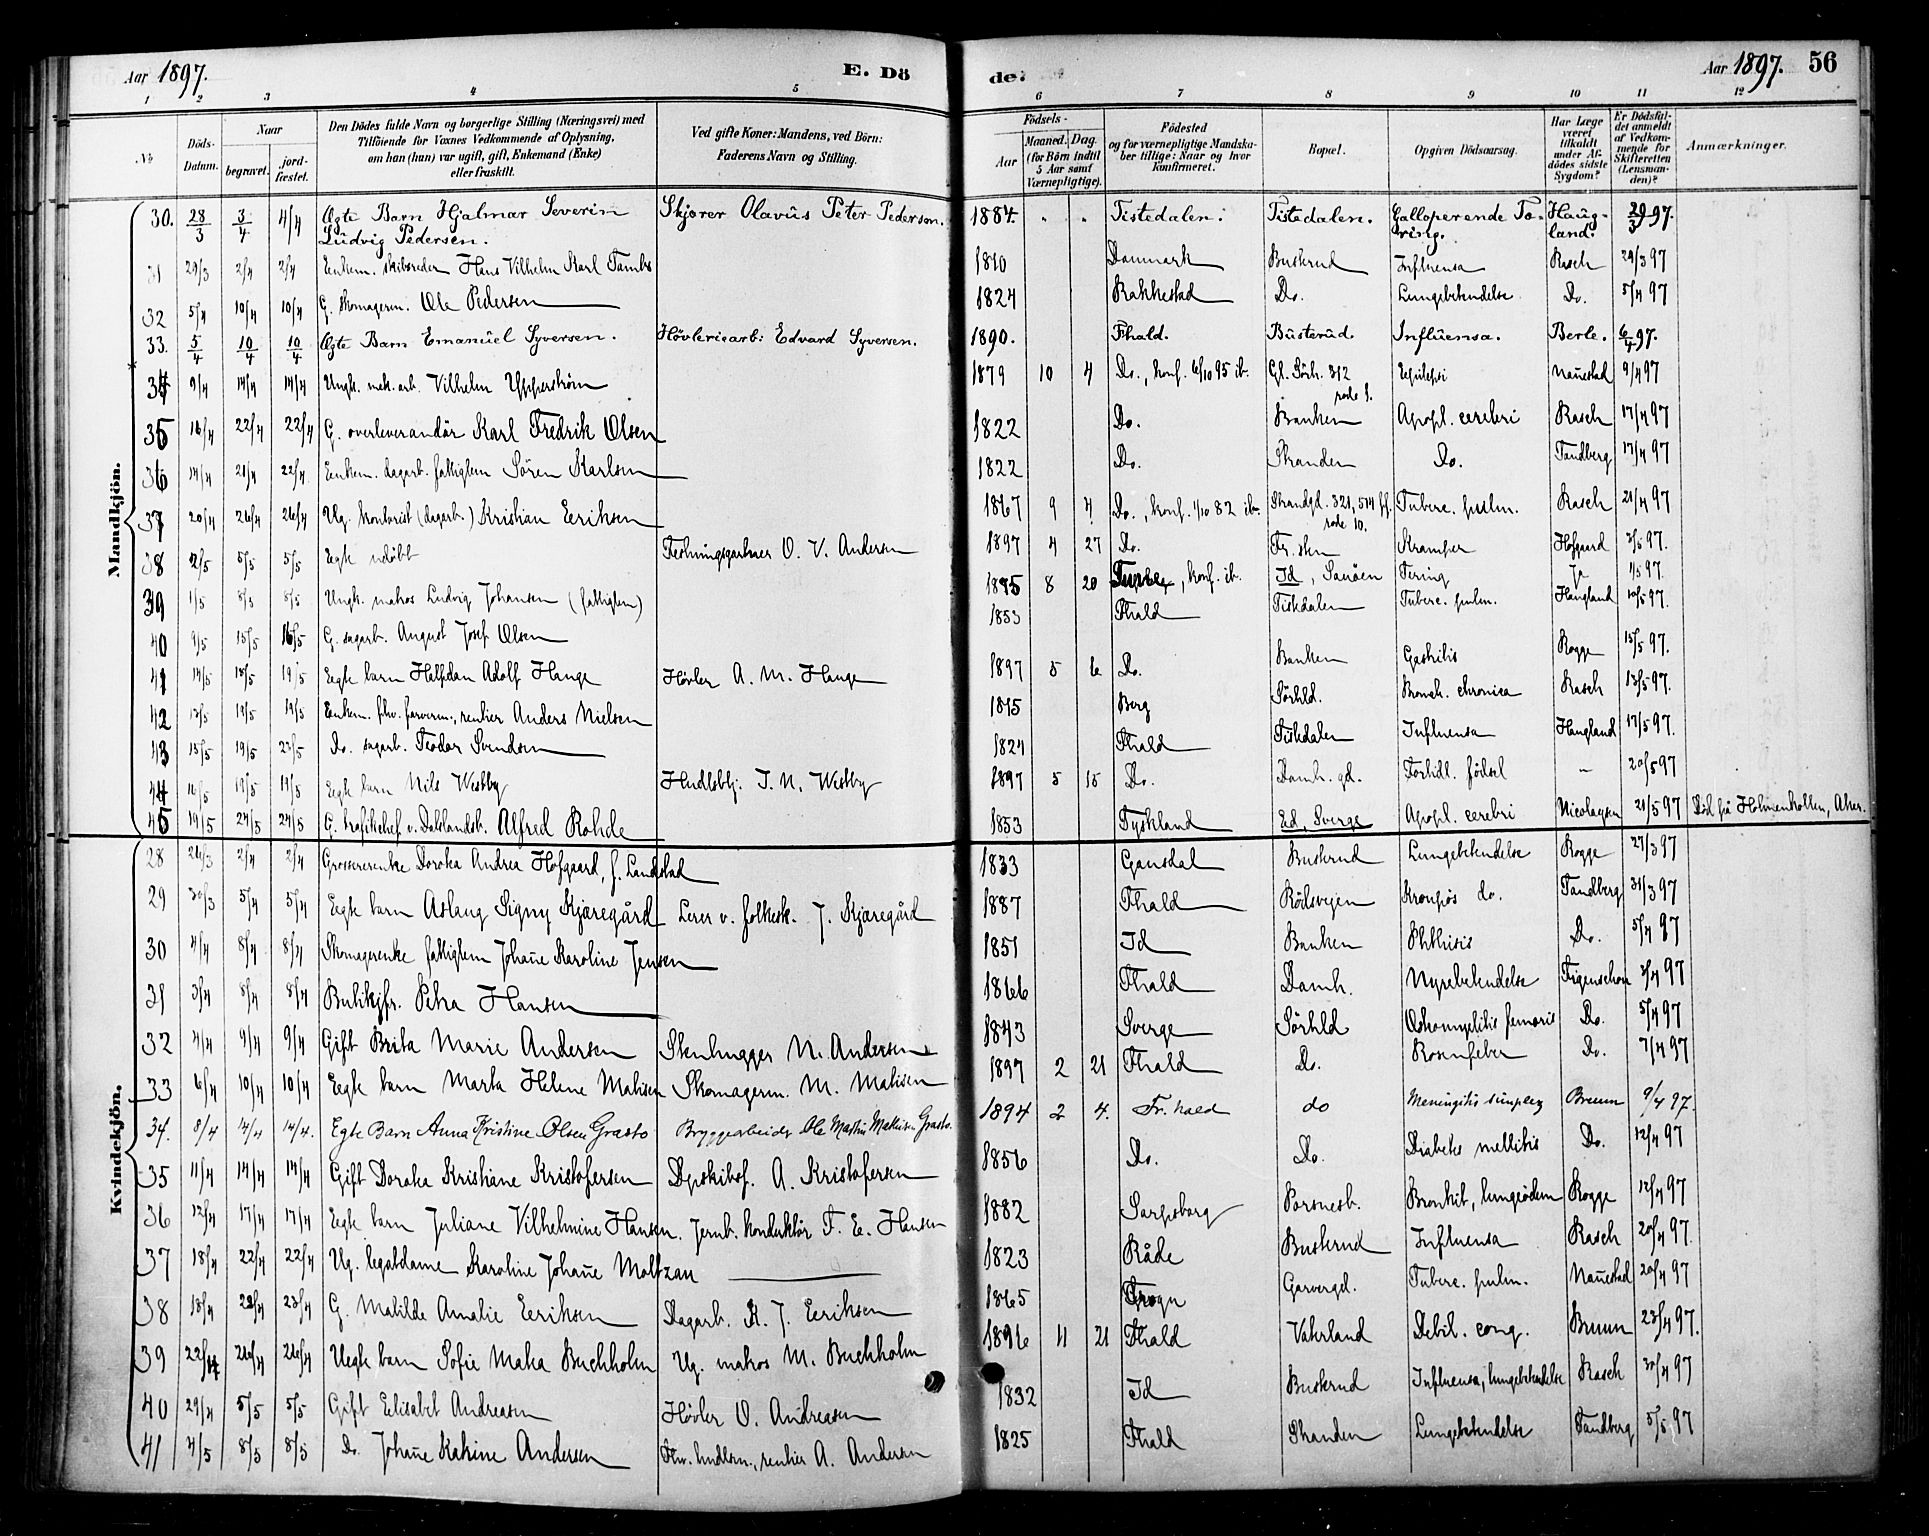 Aar 1897. E. Dö de. Aar 1897. 56
1 2 3 4 5 6 7 8 9 10 11 12
№ Döds-Datum. Naar begravet. jord-fæstet. Den Dödes fulde Navn og borgerlige Stilling (Næringsvei) med Tilföiende for Voxnes Vedkommende af Oplysning, om han (hun) var ugift, gift, Enkemand (Enke) eller fraskilt. Ved gifte Koner: Mandens, ved Börn: Faderens Navn og Stilling. Födsels- Aar Maaned. Dag. (for Börn indtil 5 Aar samt Værnepligtige). Födested og for værnepligtige Mandskaber tillige: Naar og hvor konfirmeret. Bopæl. Opgiven Dödsaarsag. Har Læge været tilkaldt under Afdödes sidste Sygdom? Er Dödsfaldet anmeldt af Vedkommende for Skifteretten (Lensmanden)? Anmærkninger.
Mandkjön.
30. 28/3 3/4 4/4 Ægte Barn Hjalmar Severin Ludvig Pedersen. Skjører Olavus Peter Pedersen. 1884. " " Tistedalen. Tistedalen. Galloperende Tæring. Haugland. 29/3 97.
31 29/3 2/4 2/4 Enkem. skibsreder Hans Vilhelm Karl Tambs 1810 Danmark Buskrud Influensa Rasch 29/3 97
32 5/4 10/4 10/4 G. skomagerm. Ole Pedersen 1824 Rakkestad Do. Lungebetendelse Do. 5/4 97
33. 5/4 10/4 10/4 Ægte Barn Emanuel Syversen. Høvleriearb: Edvard Syversen. 1890. Fhald. Busterud. Influensa. Berle. 6/4 97.
34 9/4 14/4 14/4 Ungk. mek. arb. Vilhelm Ypperström 1879 10 4 Do., konf. 6/10 95 ib. Gl. Sörh. 312 rode 9. Epilepsi Nañestad 9/4 97
35 16/4 22/4 22/4 G. overleverandör Karl Fredrik Olsen 1822 Do. Banken Apopl. cerebri Rasch 17/4 97
36 14/4 21/4 22/4 Enkem. dagarb. fattiglem Sören Karlsen 1822 Do. Stranden Do. Tandberg 17/4 97
37 20/4 26/4 26/4 Ug. kontorist (dagarb.) Kristian Eriksen 1867 9 4 Do., konf. 1/10 82 ib. Strandgd. 321, rode 10. Tuberc. pulm. Rasch 21/4 97
38 2/5 5/5 5/5 Egte udöbt Festningsgartner O. V. Andersen 1897 4 27 Do. Fr. sten Kramper Hofgaard 3/5 97.
39 1/5 8/5 8/5 Ungk. matros Ludvig Johansen (fattiglem) 1875 8 20 konf. ib. Id, Sauöen Tering Ja 1/5 97.
40 9/5 15/5 16/5 G. sagarb. August Josef Olsen 1853 Fhald Tistedalen Tuberc. pulm. Haugland 10/5 97.
41 14/5 18/5 19/5 Egte barn Halfdan Adolf Hange Hövler A. M. Hange 1897 5 6 Do. Banken Gastritis Rogge 15/5 97.
42 13/5 19/5 19/5 Enkem. fhv. farverm., rentier Anders Nielsen 1815 Berg Sörhld. Bronch. chronica Rasch 13/5 97.
43 15/5 19/5 23/5 Do. sagarb. Teodor Svendsen 1824 Fhald Tistedalen Influensa Haugland 17/5 97.
44 16/5 19/5 19/5 Egte barn Nils Westby Hndlsbtj. J. N. Westby 1897 5 15 Do. Damh. gd. Forhdl. födsel – 20/5 97
45 19/5 24/5 24/5 G. trafikchef v. Dalslandsb. Alfred Rohde 1853 Tyskland Ed, Sverge Apopl. cerebri Nicolaysen 21/5 97 Död på Holmenkollen, Aker.
Kvindekjön.
28 26/3 2/4 2/4 Grossererenke Dorotea Andrea Hofgaard, f. Landstad 1833 Gausdal Buskrud Lungebetendelse Rogge 27/3 97
29 30/3 5/4 5/4 Egte barn Aslaug Signy Kjæregård Lerer v. folkesk. J. Kjæregård 1887 Fhald Rödsvejen Krouppös do. Tandberg 31/3 97
30 4/4 8/4 8/4 Skomagerenke fattiglem Johañe Karoline Jensen 1851 Id Banken Phthisis Do. 5/4 97
31 3/4 8/4 8/4 Butikjfr. Petra Hansen 1866 Fhald Damh. Nyrebetendelse Figenschou 3/4 97
32 4/4 9/4 9/4 Gift Brita Marie Andersen Stenhugger N. Andersen 1843 Sverge Sörhld Osteomyelitis femoris Do. 5/4 97
33 6/4 10/4 10/4 Egte barn Marta Helene Matisen Skomagerm. M. Matisen 1897 2 21 Fhald Do. Rosenfeber Do. 7/4 97
34. 8/4 14/4 14/4. Egte Barn Anna Kristine Olsen Grasto Bryggearbeider Ole Martin Mathisen Grasto. 1894 2 4. Fr. hald do Meningitis simplex Bruun 9/4 97.
35 11/4 14/4 14/4 Gift Dorotea Kristiane Kristofersen Dpskibsf. A. Kristofersen 1856 Do. Do. Diabetes mellitis Do. 12/4 97
36 12/4 17/4 17/4 Egte barn Juliane Vilhelmine Hansen. Jernb. konduktör F. E. Hansen 1882 Sarpsborg Porsnesb. Bronkit, lungeödem Rogge 12/4 97
37 18/4 22/4 22/4 Ug. legatdame Karoline Johañe Moltzau 1823 Råde Buskrud Influensa Rasch 20/4 97
38 18/4 22/4 23/4 G. Matilde Amalie Eriksen Dagarb. K. J. Eriksen 1865 Trogn Garvergd. Tuberc. pulm. Nañestad 20/4 97
39 22/4 26/4 26/4 Uegte barn Sofie Marta Buchholm Ug. matros M. Buchholm 1896 11 21 Fhald Vaterland Debil. cong. Bruun 23/4 97.
40 29/4 5/5 5/5 Gift Elisabet Andreasen Hövler O. Andreasen 1832 Id Buskrud Influensa, lungebetendelse Rasch 30/4 97
41 4/5 8/5 8/5 Do. Johañe Katrine Andersen Fhv. hndlsm., rentier A. Andersen 1825 Fhald Stranden Lungebetendelse Tandberg 5/5 97